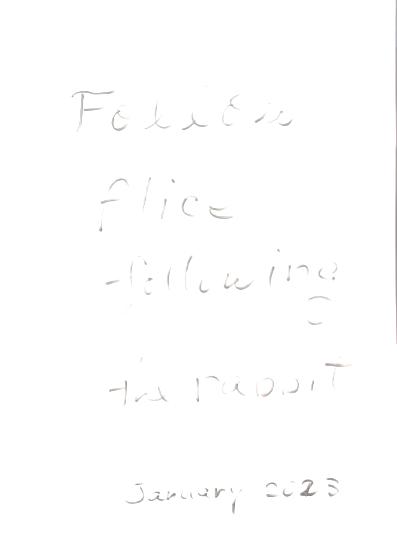 Alice
following
the rabbit
January 2023